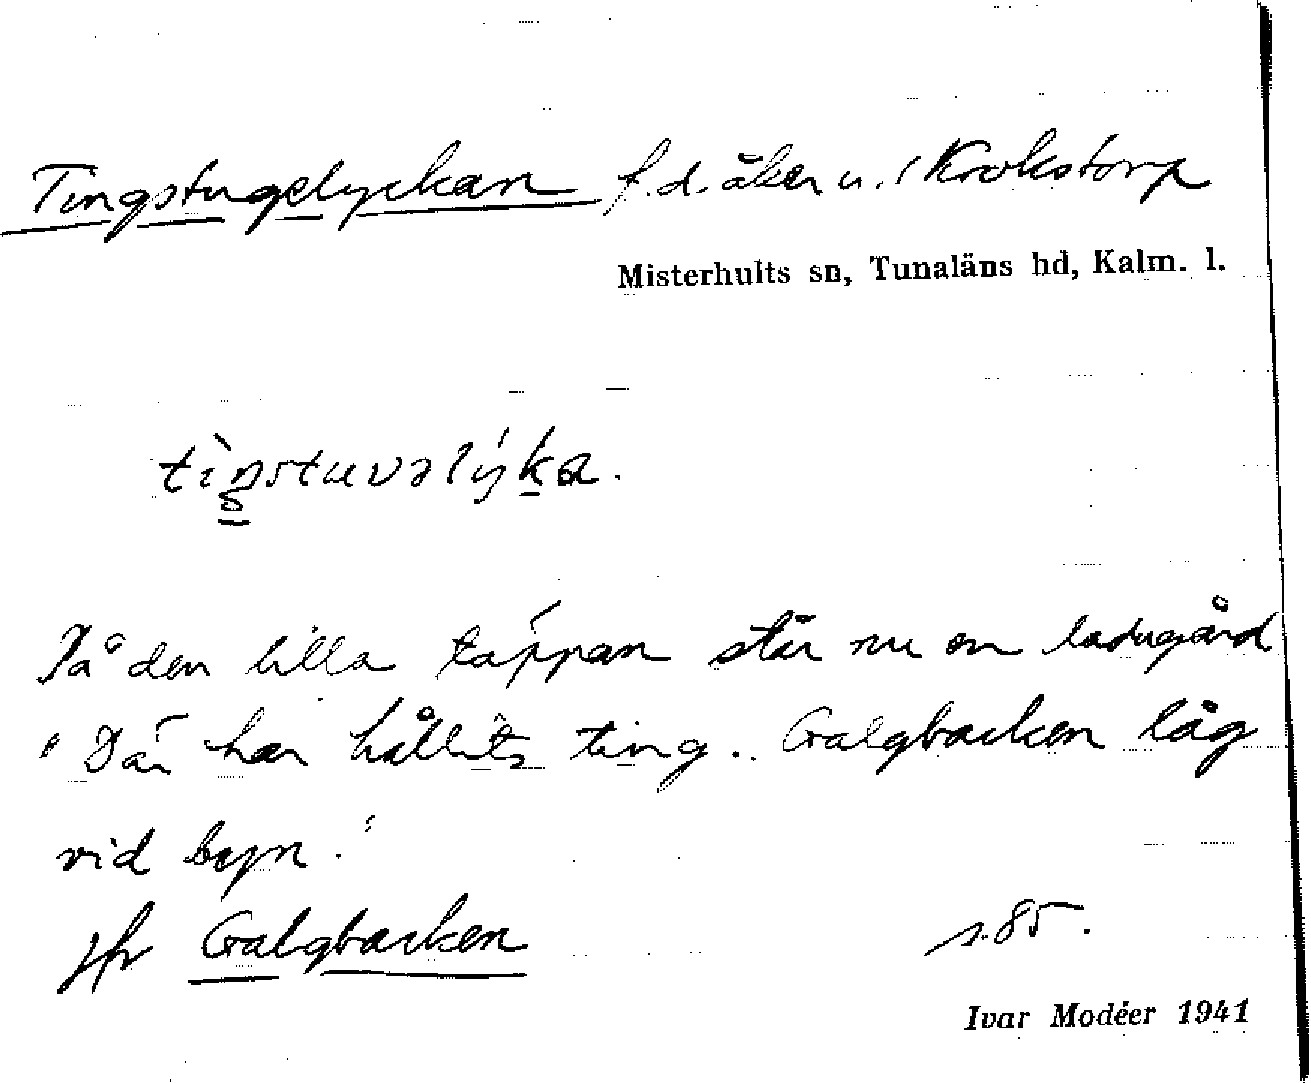 Tingstugelyckan f.d. åker u. i Krokstorp
Misterhults sn, Tunaläns hd, Kalm. l.
tìŋstuvəlýka.
På den lilla täppan står nu en ladugård
"Där har hållits ting. Galgbacken låg
vid byn."
Jfr Galgbacken
s. 85.
Ivar Modéer 1941